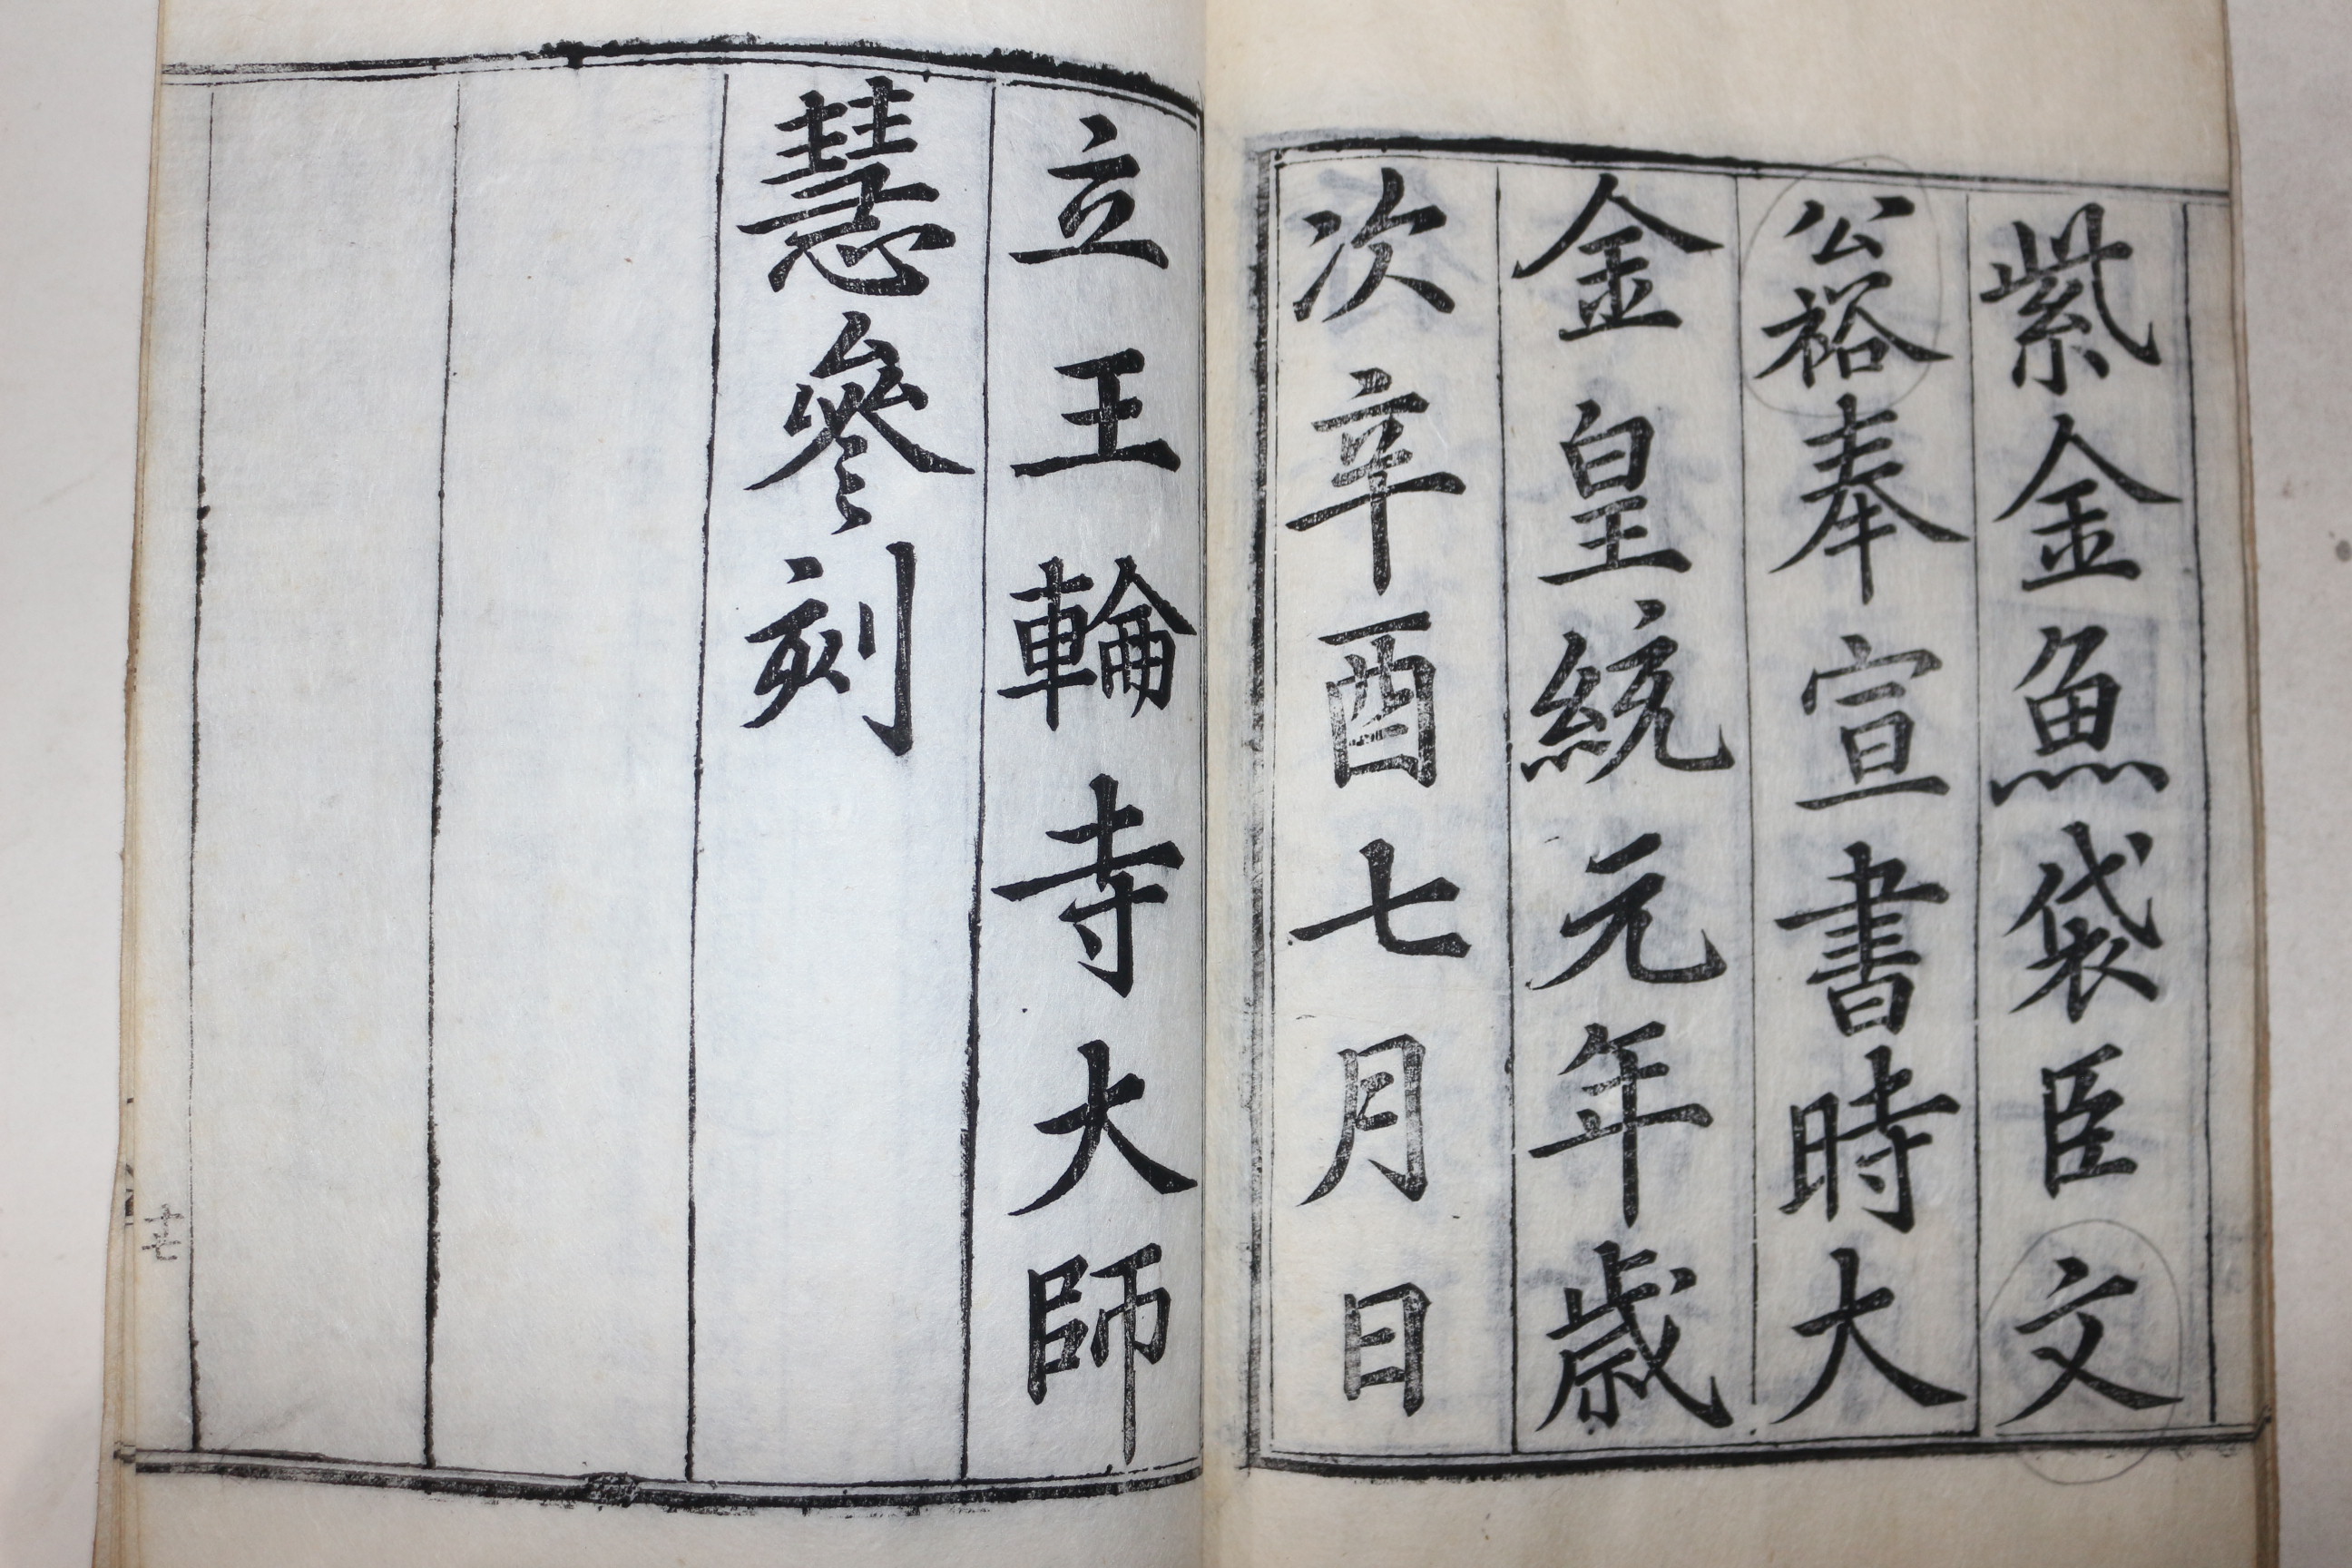 紫金魚袋臣文
公裕奉宣書時大
金皇統元年歲
次辛酉七月日
立王輪寺大師
慧參刻
十七